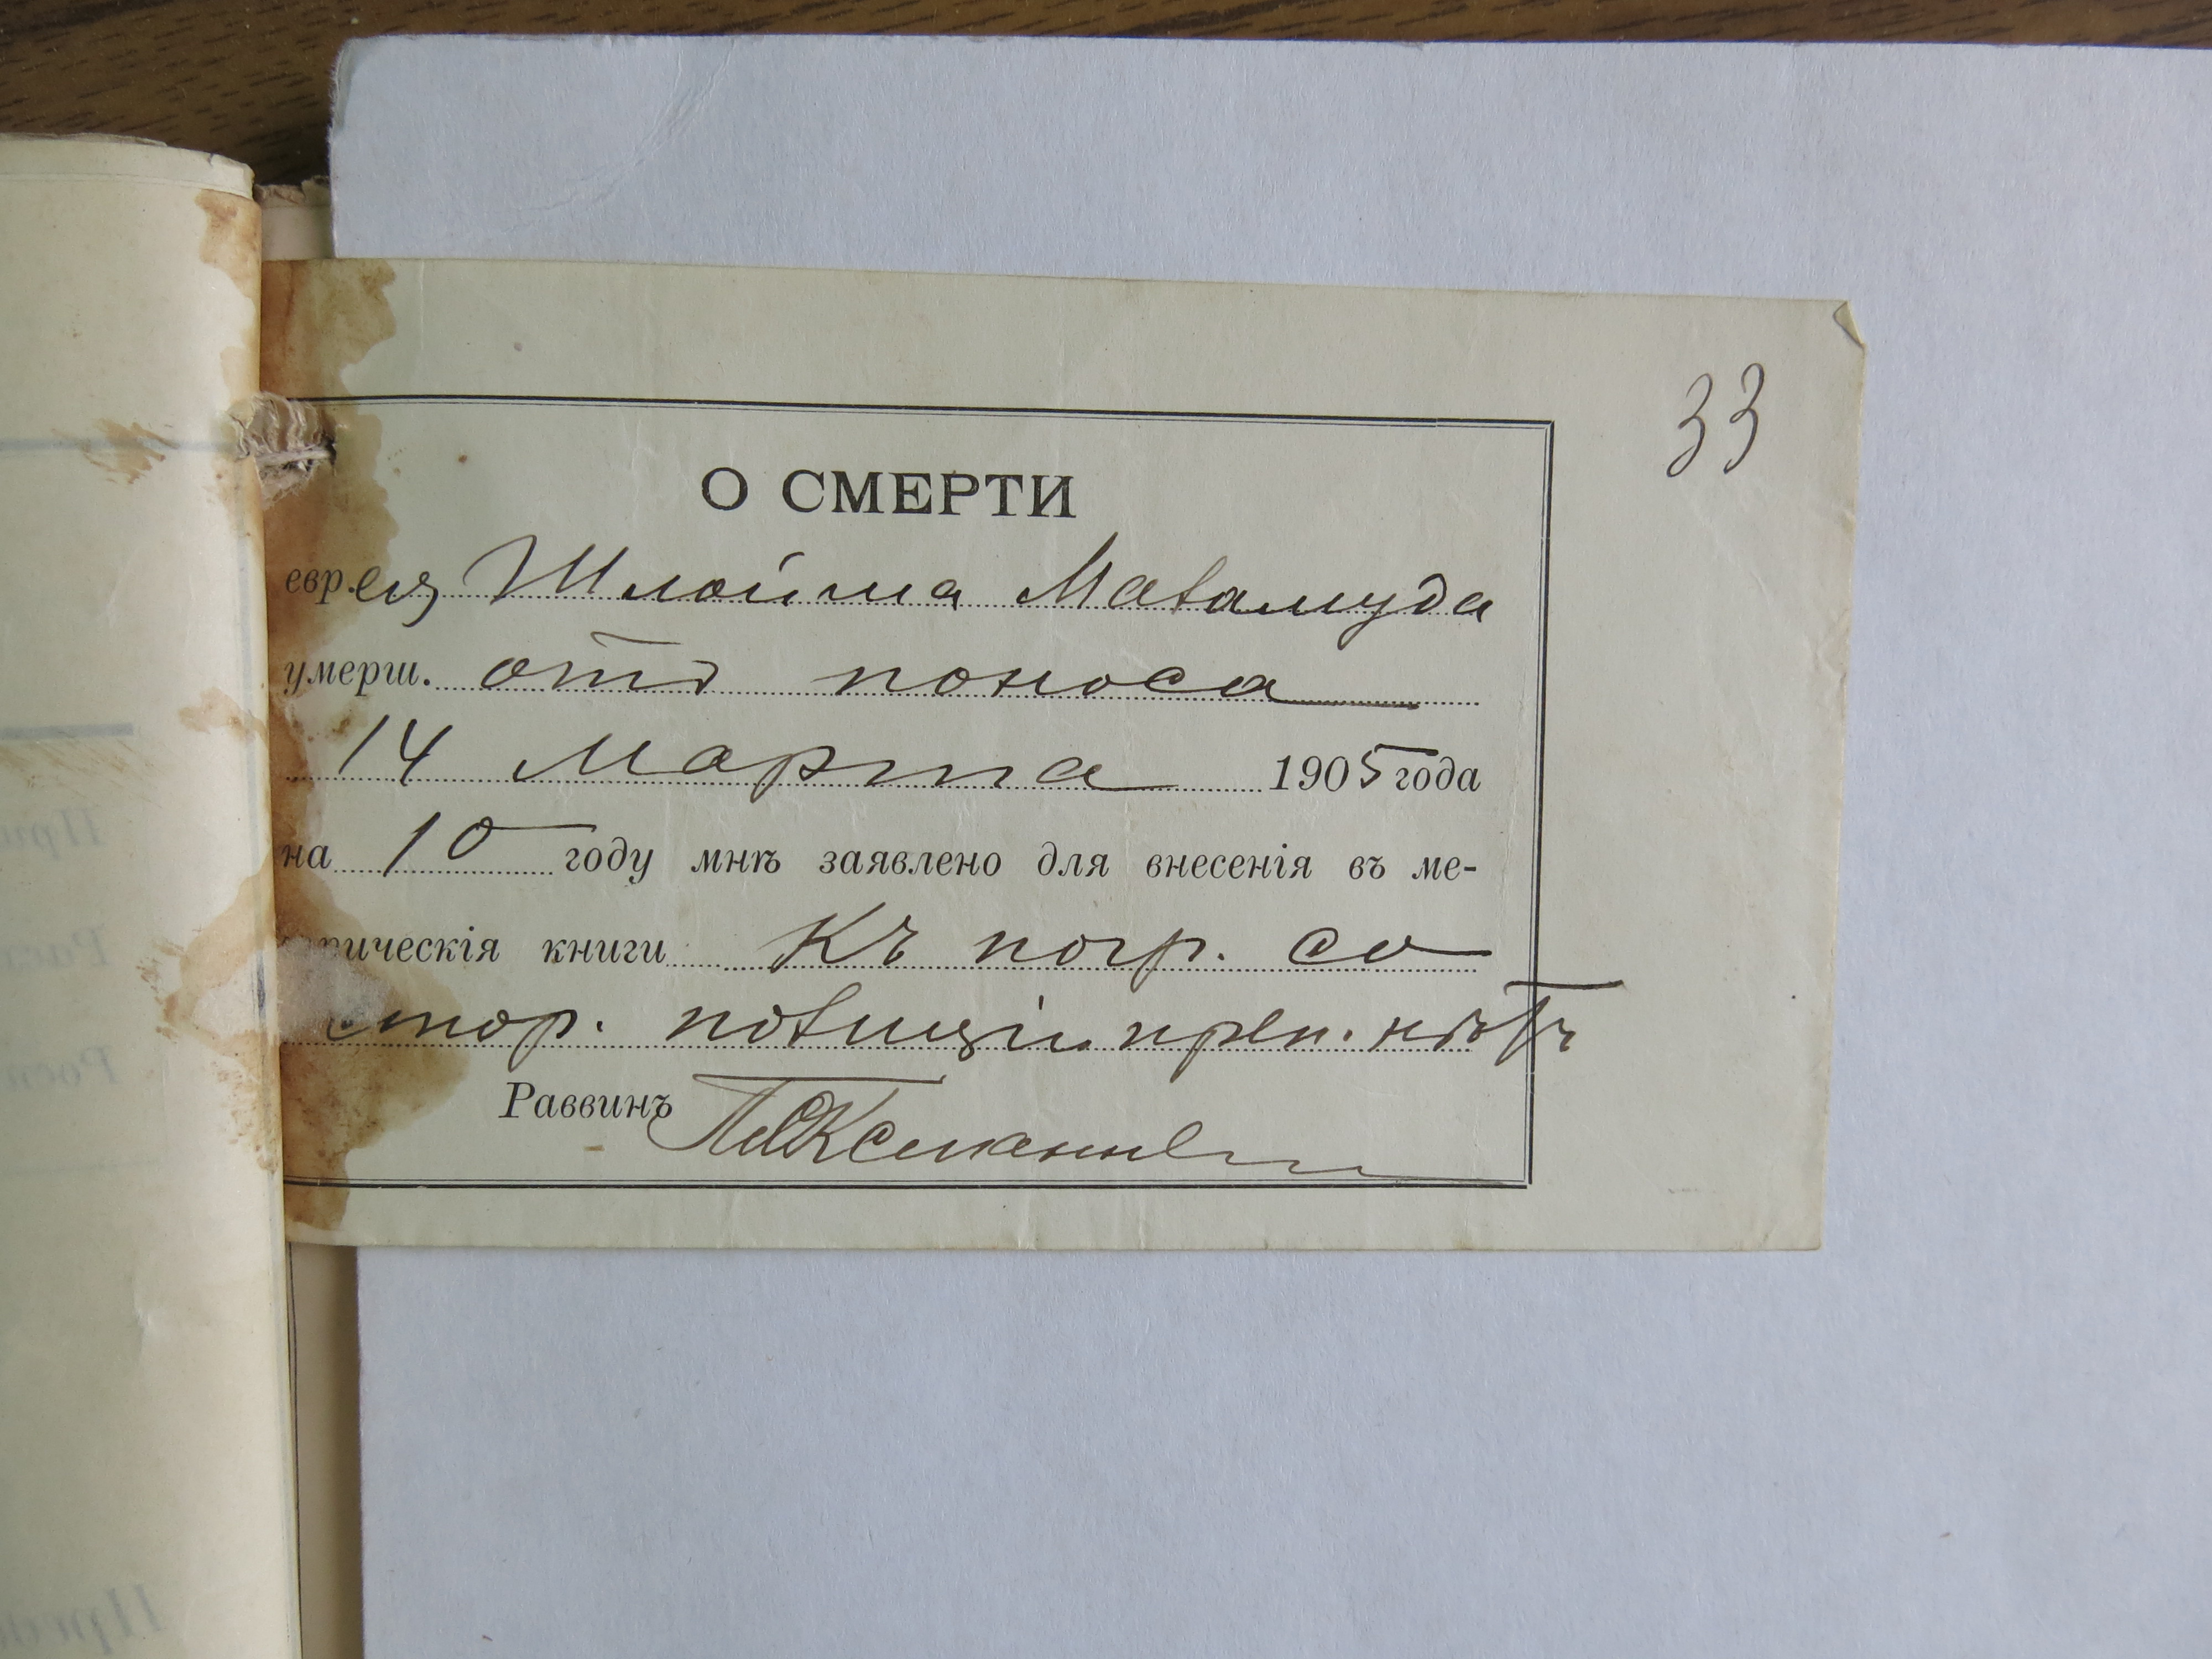 33
О СМЕРТИ
еврея Шлойма Маваллуда
умерш. отъ поноса
14 Марта 1905 года
на 10 году мнѣ заявлено для внесенія въ ме-
рическія книги Къ погр. со
стор. полиціи преп. нѣтъ
Раввинъ